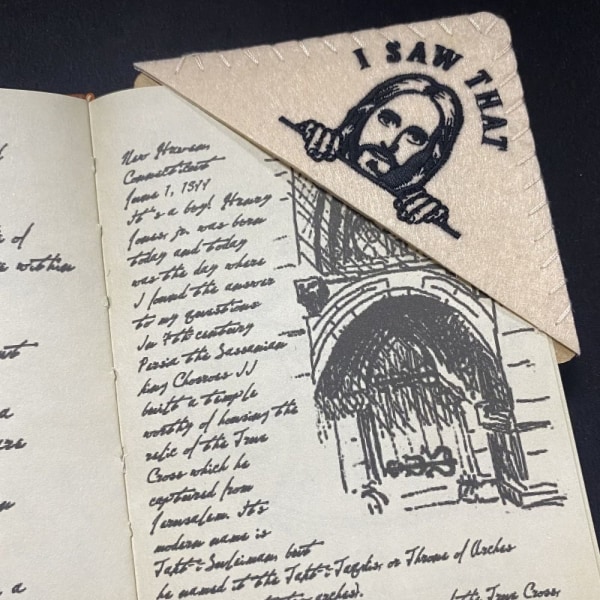 I SAW THAT
of
within
a
New Haven,
Connecticut
June 1, 1899
It's a boy! Henry
Jones, jr. was born
today and today
was the day where
I found the answer
to my questions
In 7th century
Persia the Sassanian
king Chosroes II
built a temple
worthy of housing the
relic of the True
Cross which he
captured from
Jerusalem. It's
modern name is
Takt-i-Suleiman, but
he named it the Takt-i-Taqdis, or Throne of Arches
arches).
the True Cross,